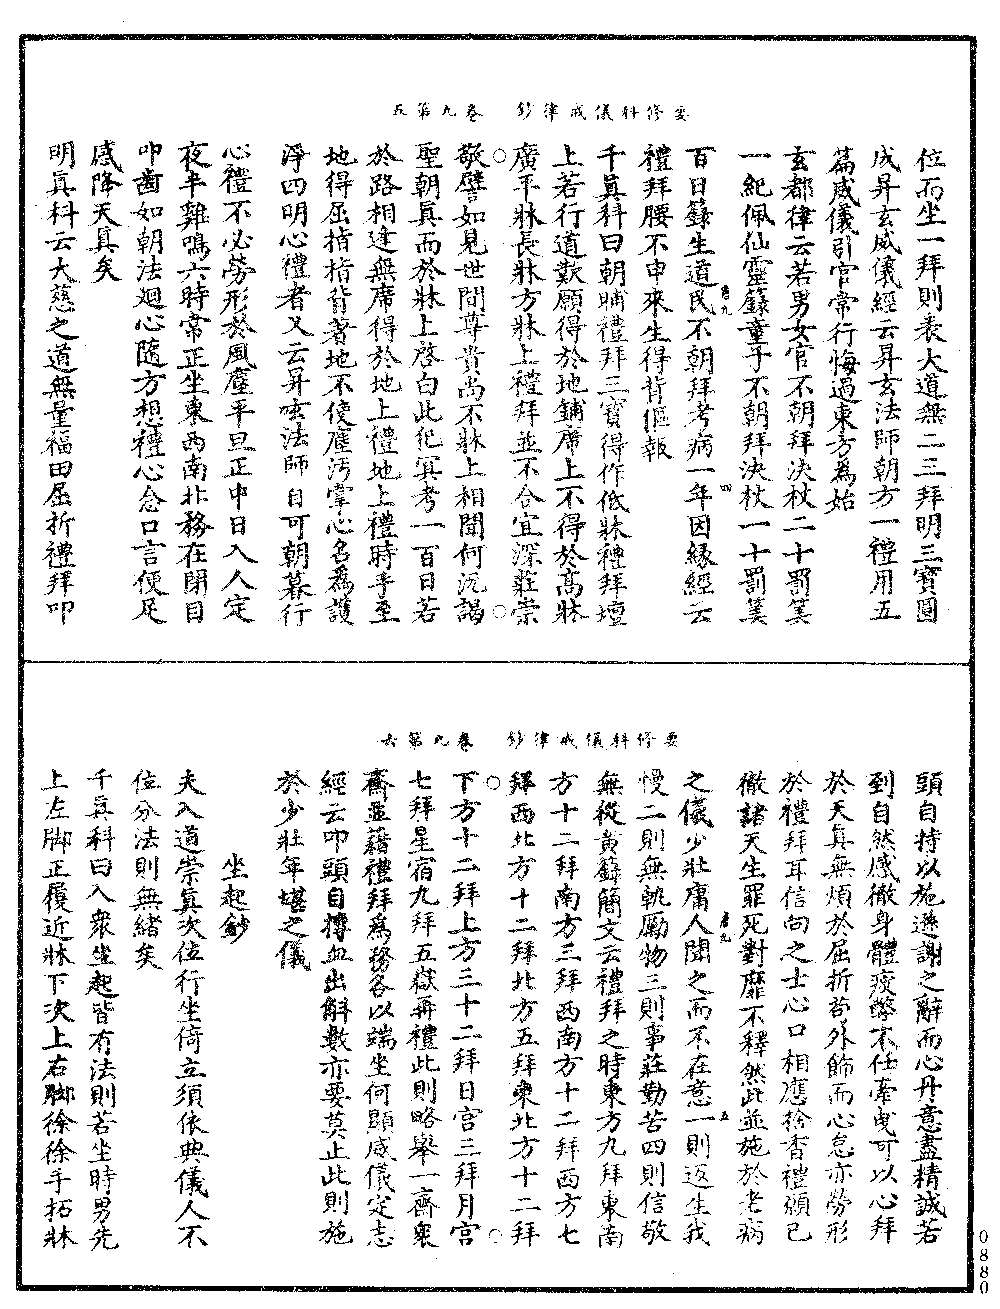 要修科儀戒律鈔　卷九第五
位而坐一拜則表大道無二三拜明三寶圓
成昇玄威儀經云昇玄法師朝方一禮用五
篇威儀引官常行悔過東方為始
玄都律云若男女官不朝拜决杖二十罰筭
一紀佩仙靈籙童子不朝拜決杖一十罰筭
百日籙生道民不朝拜考病一年因縁經云
禮拜腰不申來生得背傴報
千真科曰朝晡禮拜三寶得作低牀禮拜壇
上若行道歎願得於地鋪席上不得於高牀
廣平牀長牀方牀上禮拜並不合宜深莊崇
敬譬如見世間尊貴尚不牀上相聞何況謁
聖朝真而於牀上啓白此犯冥考一百日若
於路相逢無席得於地上禮地上禮時手至
地得屈指指背著地不使塵污掌心名爲護
淨四明心禮者又云昇玄法師自可朝暮行
心禮不必勞形於風塵平旦正中日入人定
夜半雞鳴六時常正坐東西南北務在閉目
叩齒如朝法廻心隨方想禮心念口言便足
感降天真矣
明真科云大慈之道無量福田屈折禮拜叩
要修科儀戒律鈔　卷九第六
頭自持以施遜謝之辭而心丹意盡精誠若
到自然感徹身體疲弊不任牽曳可以心拜
於天真無煩於屈折苟外飾而心怠亦勞形
於禮拜耳信向之士心口相應捻香禮頌已
徹諸天生罪死對靡不釋然此並施於老病
之儀少壯庸人聞之而不在意一則返生我
慢二則無軌勵物三則事莊勤苦四則信敬
無從黃籙簡文云禮拜之時東方九拜東南
方十二拜南方三拜西南方十二拜西方七
拜西北方十二拜北方五拜東北方十二拜
下方十二拜上方三十二拜日宮三拜月宮
七拜星宿九拜五嶽再禮此則略舉一齋衆
齋並藉禮拜爲務各以端坐何顯威儀定志
經云叩頭自搏血出斛數亦要莫止此則施
於少壯年堪之儀
坐起鈔
夫入道崇真次位行坐倚立須依典儀人不
位分法則無緒矣
千真科曰入衆坐起皆有法則若坐時男先
上左脚正履近牀下次上右脚徐徐手拓牀
0880